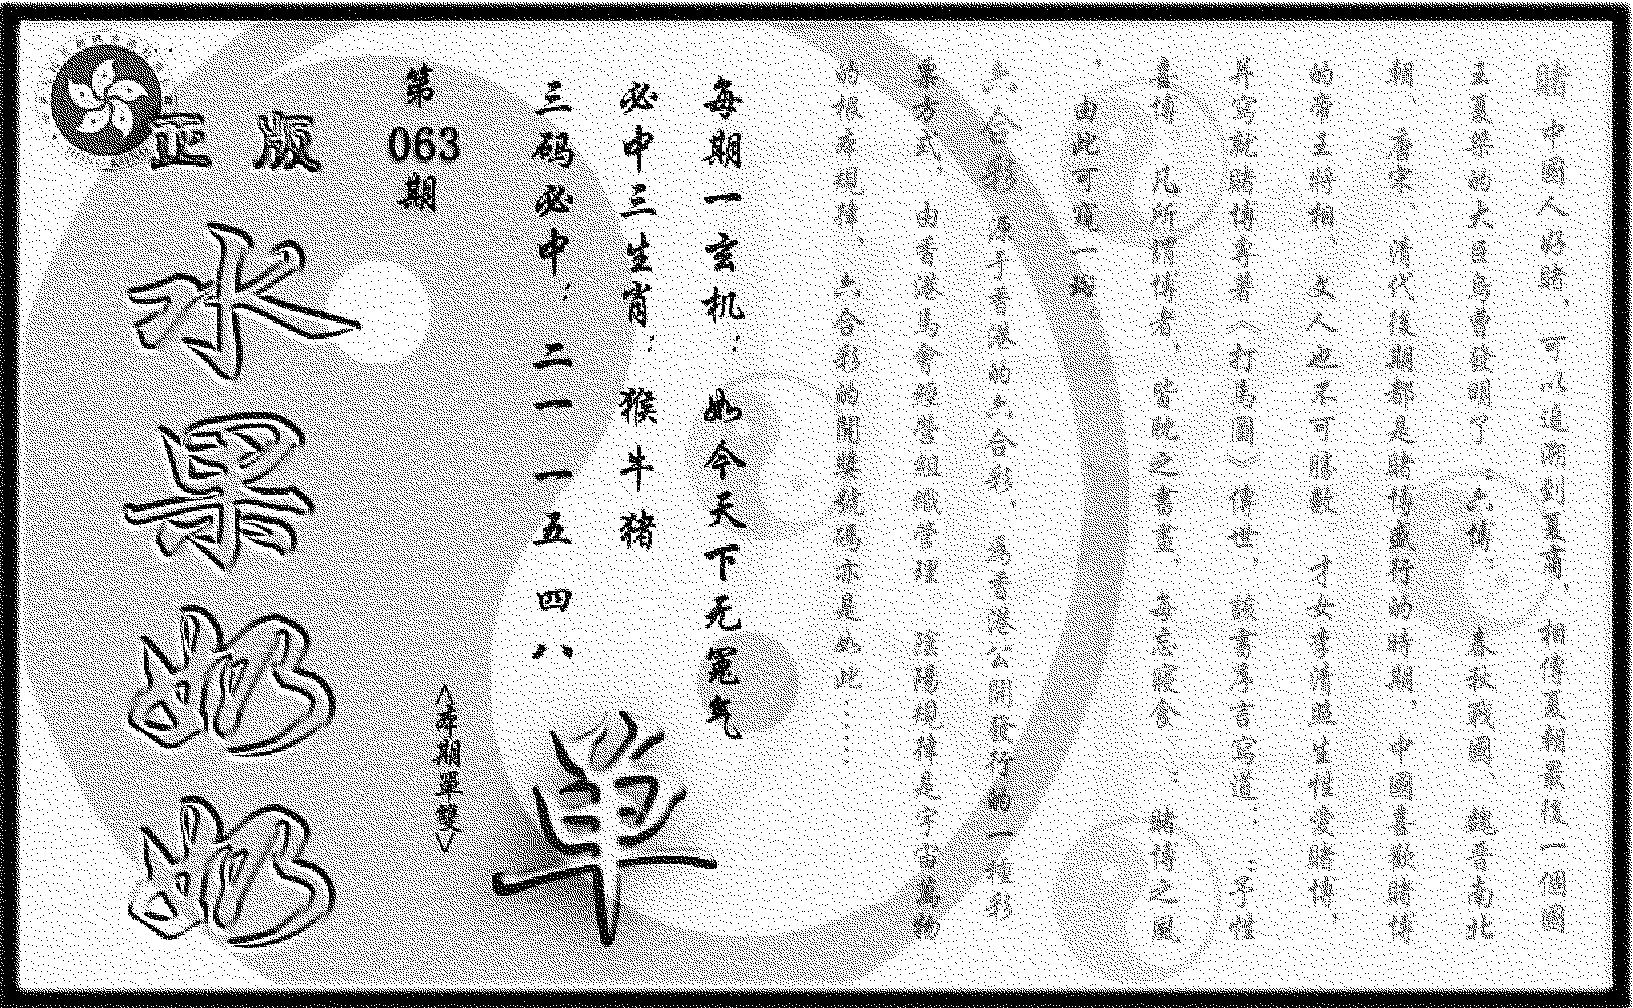 賭中國人好賭，可以追溯到夏商，相傳夏朝最後一個國
王夏桀的大臣烏曹發明了“六博”，春秋戰國、魏晉南北
朝、唐宋、清代後期都是賭博盛行的時期，中國喜歡賭博
的帝王將相、文人也不可勝數，才女李清照生性愛賭博，
并寫就賭博專著〈打馬圖〉傳世，該書序言寫道：“予性
喜博，凡所謂博者，皆耽之晝夜，每忘寢食”；賭博之風
，由此可窺一斑
六合彩，源于香港的六合彩，爲香港公開發行的一種彩
票方式，由香港馬會經營組織管理
的根本規律，六合彩的開獎號碼亦是如此……
每期一玄机：如今天下无冤气
必中三生肖：猴牛猪
三码必中：二一 一五 四八
第
063
期
正版
水果奶奶
〈本期單雙〉
单